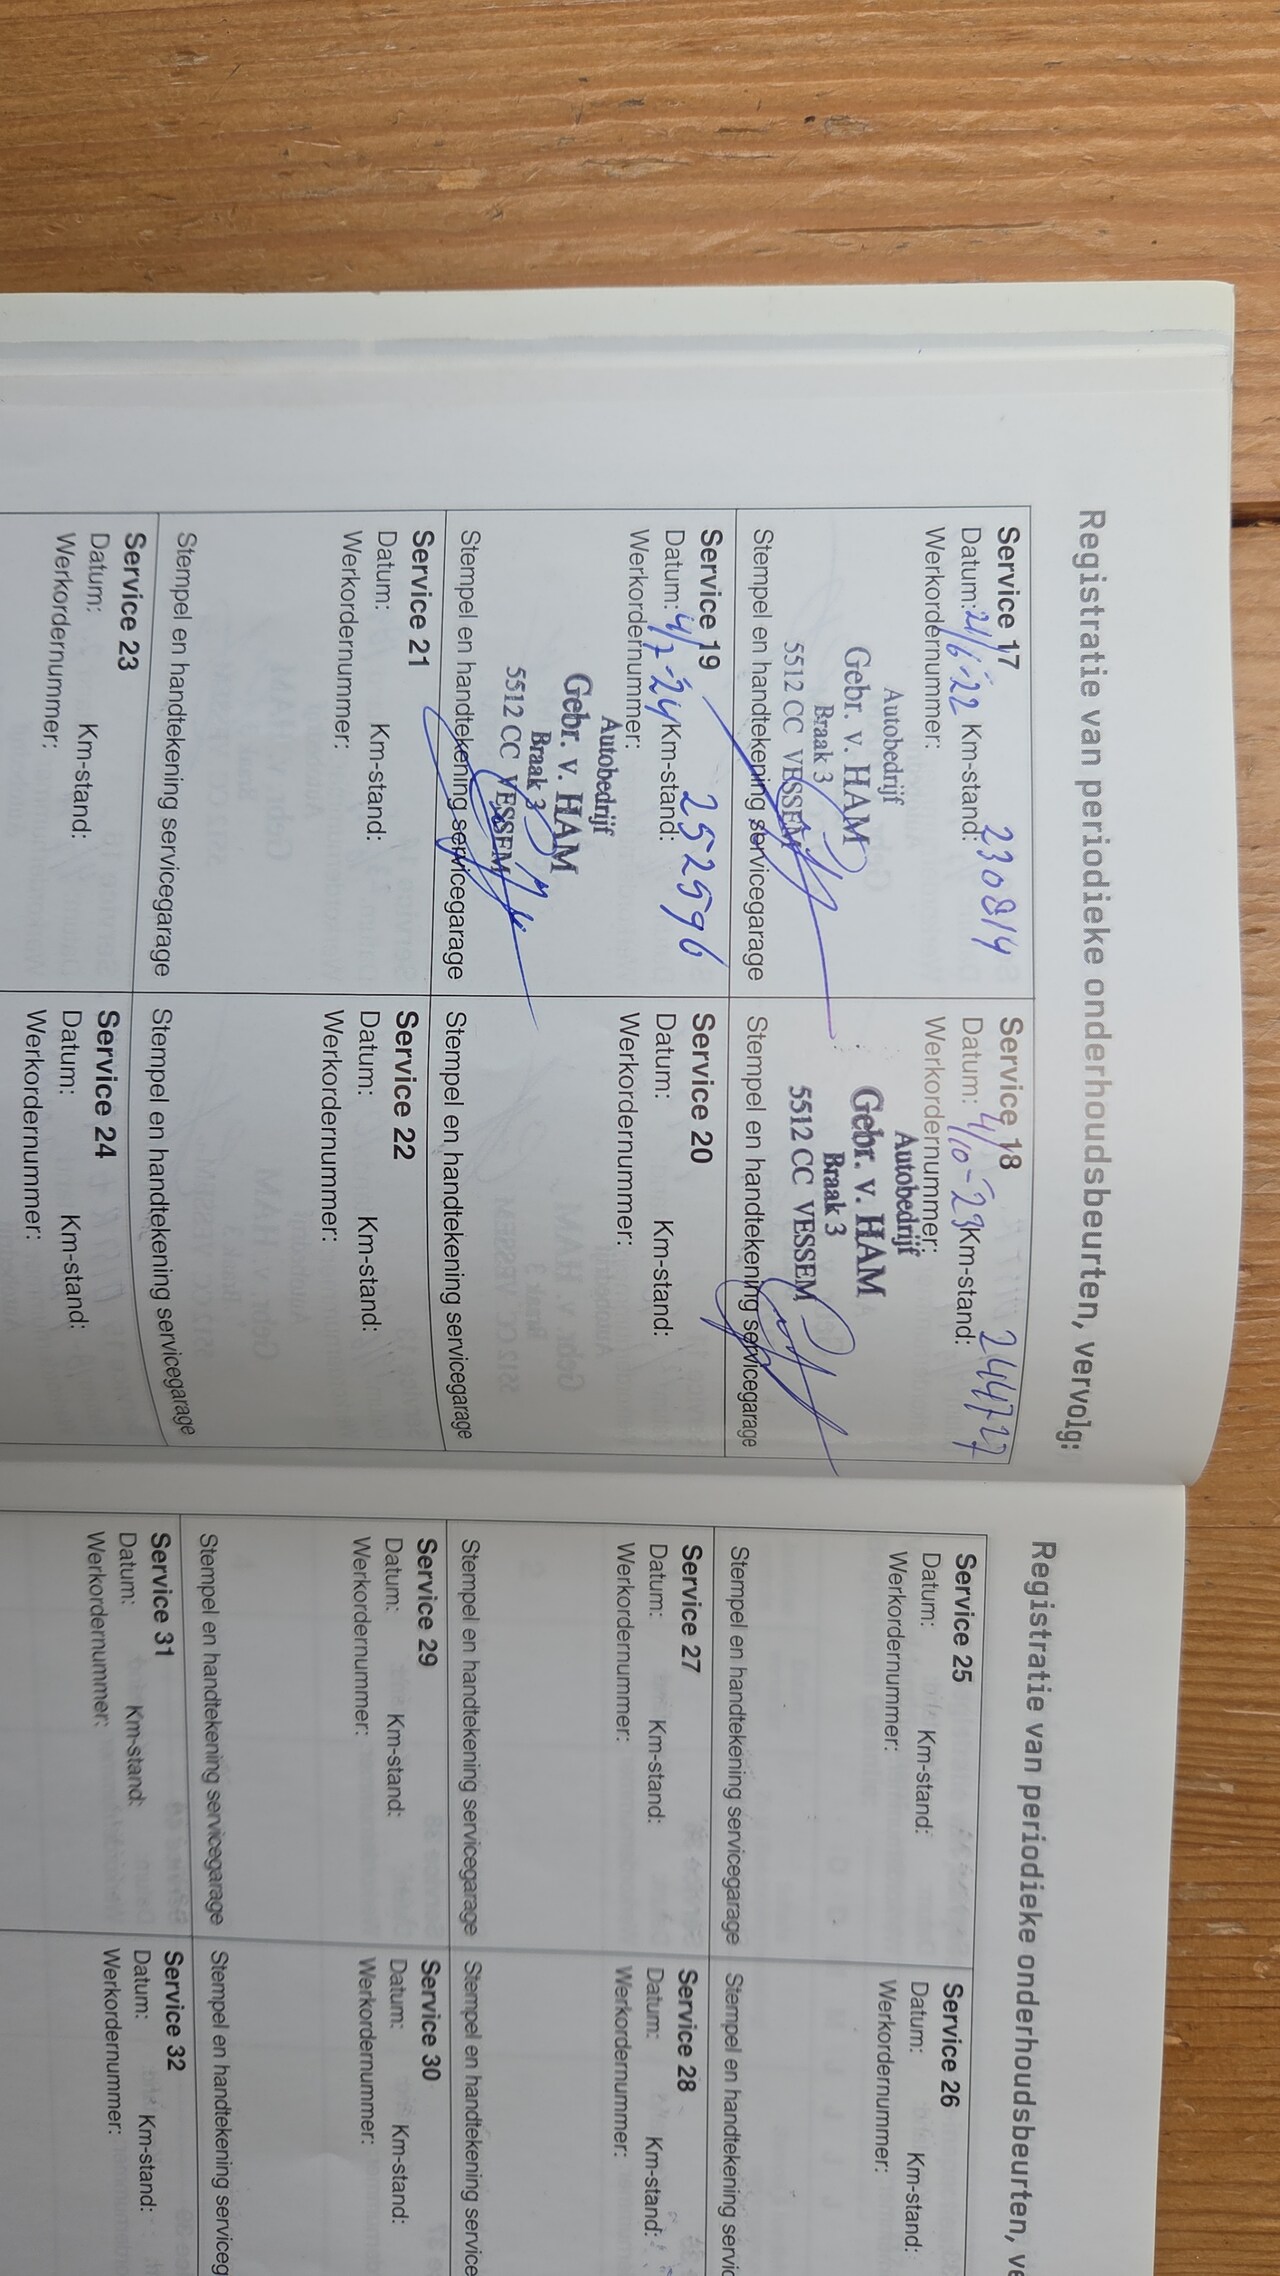 Registratie van periodieke onderhoudsbeurten, vervolg:
Service 17
Datum: 21/6-22 Km-stand: 230814
Werkordernummer:
Autobedrijf
Gebr. v. HAM
Braak 3
5512 CC VESSEM
Stempel en handtekening servicegarage
Service 18
Datum: 4/10-23 Km-stand: 244727
Werkordernummer:
Autobedrijf
Gebr. v. HAM
Braak 3
5512 CC VESSEM
Stempel en handtekening servicegarage
Service 19
Datum: 4/7-24 Km-stand: 252596
Werkordernummer:
Autobedrijf
Gebr. v. HAM
Braak 3
5512 CC VESSEM
Stempel en handtekening servicegarage
Service 20
Datum: Km-stand:
Werkordernummer:
Stempel en handtekening servicegarage
Service 21
Datum: Km-stand:
Werkordernummer:
Stempel en handtekening servicegarage
Service 22
Datum: Km-stand:
Werkordernummer:
Stempel en handtekening servicegarage
Service 23
Datum: Km-stand:
Werkordernummer:
Service 24
Datum: Km-stand:
Werkordernummer:
Registratie van periodieke onderhoudsbeurten, ve
Service 25
Datum: Km-stand:
Werkordernummer:
Stempel en handtekening servicegarage
Service 26
Datum: Km-stand:
Werkordernummer:
Stempel en handtekening servic
Service 27
Datum: Km-stand:
Werkordernummer:
Stempel en handtekening servicegarage
Service 28
Datum: Km-stand:
Werkordernummer:
Stempel en handtekening service
Service 29
Datum: Km-stand:
Werkordernummer:
Stempel en handtekening servicegarage
Service 30
Datum: Km-stand:
Werkordernummer:
Stempel en handtekening serviceg
Service 31
Datum: Km-stand:
Werkordernummer:
Service 32
Datum: Km-stand:
Werkordernummer: